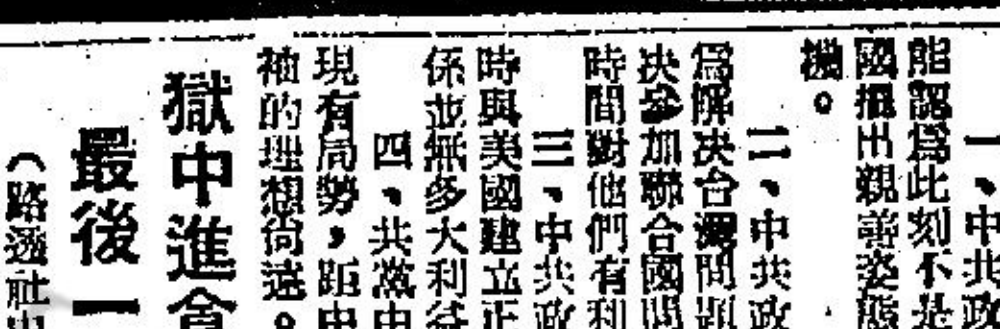 一、中共政
能認爲此刻不是
國揑出親善姿態
機。
二、中共政
爲解決台灣問題
决參加聯合國問
時間對他們有利
三、中共政
時與美國建立正
係並無多大利益
四、共黨中
現有局勢，距中
袖的理想尙遠。
獄中進食
最後一
（路透社